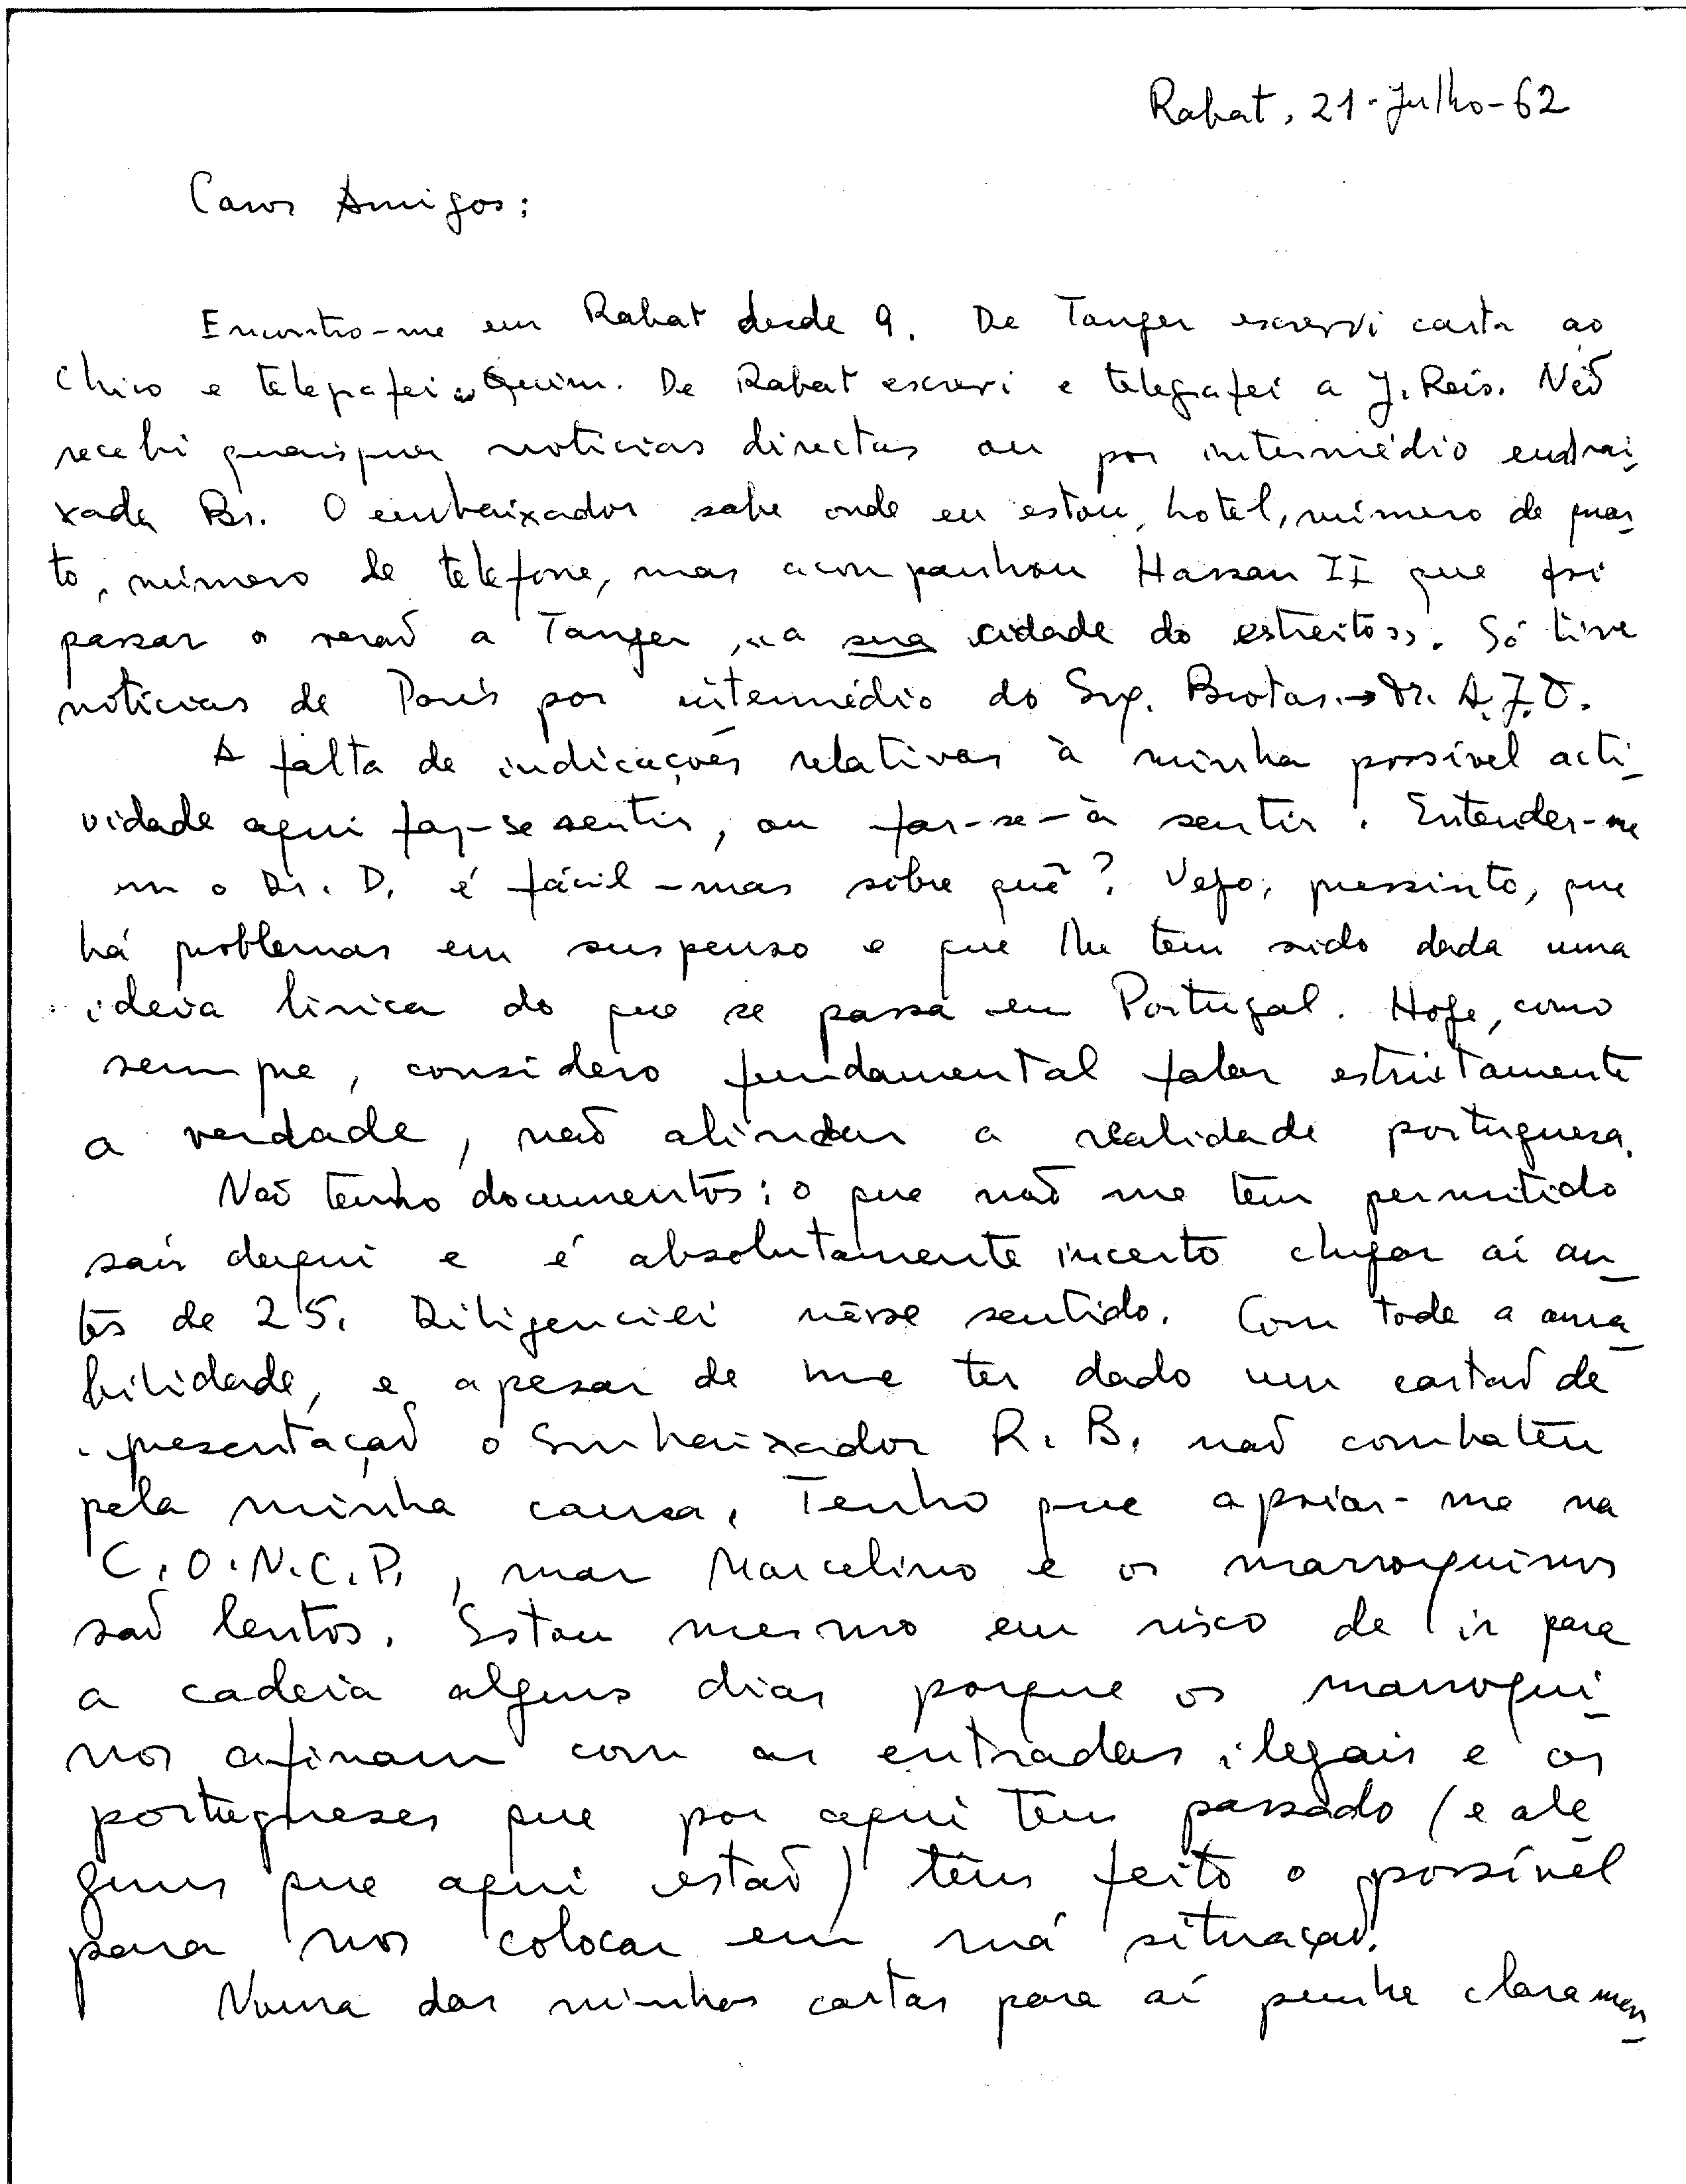 Rabat, 21-Julho-62
Caros Amigos:
Encontro-me em Rabat desde 9. De Tanger escrevi carta ao
Chico e telegrafei ao Quim. De Rabat escrevi e telegrafei a J. Reis. Não
recebi quaisquer notícias directas ou por intermédio embai-
xada Br. O embaixador sabe onde eu estou, hotel, número de quar-
to, número de telefone, mas acompanhou Hassan II que foi
passar o verão a Tanger, «a sua cidade do estreito». Só tive
notícias de Paris por intermédio do Brotas → Dr. A.J.O.
A falta de indicações relativas à minha possível acti-
vidade aqui faz-se sentir, ou far-se-à sentir. Entender-me
com o Dr. D. é fácil - mas sôbre quê? Vejo, pressinto, que
há problemas em suspenso e que lhe tem sido dada uma
ideia lírica do que se passa em Portugal. Hoje, como
sempre, considero fundamental falar estrictamente
a verdade, não alindar a realidade portuguesa.
Não tenho documentos: o que não me tem permitido
sair daqui e é absolutamente incerto chegar aí an-
tes de 25. Diligenciei nêsse sentido. Com toda a ama-
bilidade, e apesar de me ter dado um cartão de
apresentação o Embaixador R. B. não combateu
pela minha causa. Tenho que apoiar-me na
C.O.N.C.P., mas Marcelino e os marroquinos
são lentos. Estou mesmo em risco de ir para
a cadeia alguns dias porque os marroqui-
nos afinam com as entradas ilegais e os
portugueses que por aqui têm passado (e al-
guns que aqui estão) têm feito o possível
para nos colocar em má situação.
Numa das minhas cartas para aí punha claramen-